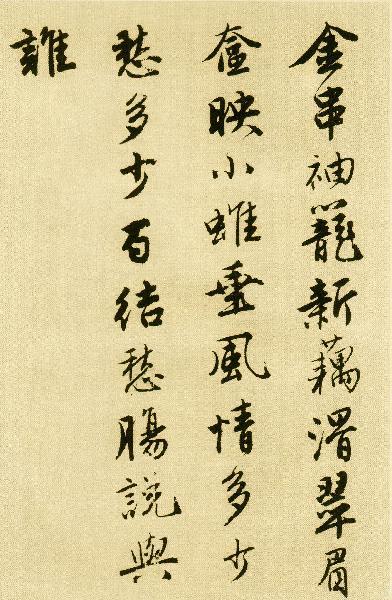 金串袖籠新藕滑翠眉
奩映小垂風情多少
愁多少百結愁腸說與
誰